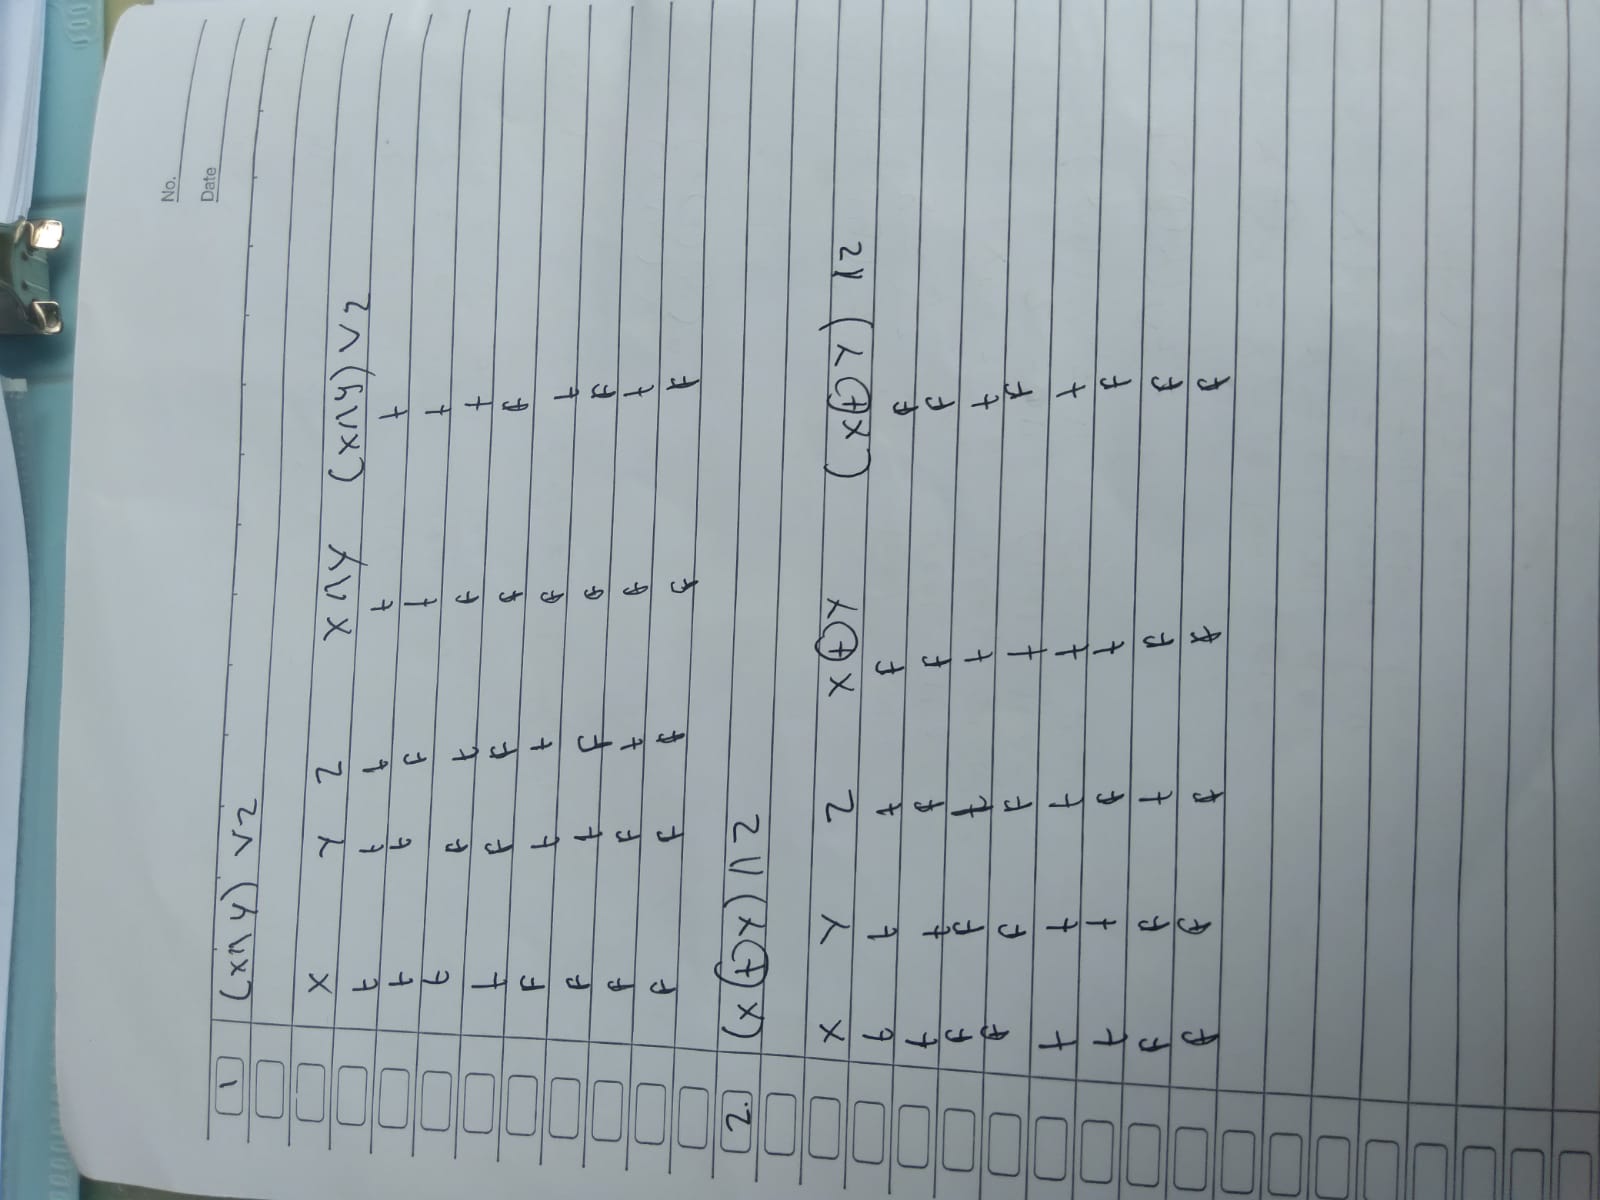 No.
Date
1 (x∧y) ∨ z
X Y Z X∧Y (x∧y) ∨ z
t t t t t
t t f t t
t f t f t
t f f f f
f t t f t
f t f f f
f f t f t
f f f f f
2. (x⊕y) ∧ z
X Y Z X⊕Y (X⊕Y) ∧ z
t t t f f
t t f f f
f f t t t
f f f t f
t t t t t
t t f t f
f f t f f
f f f f f